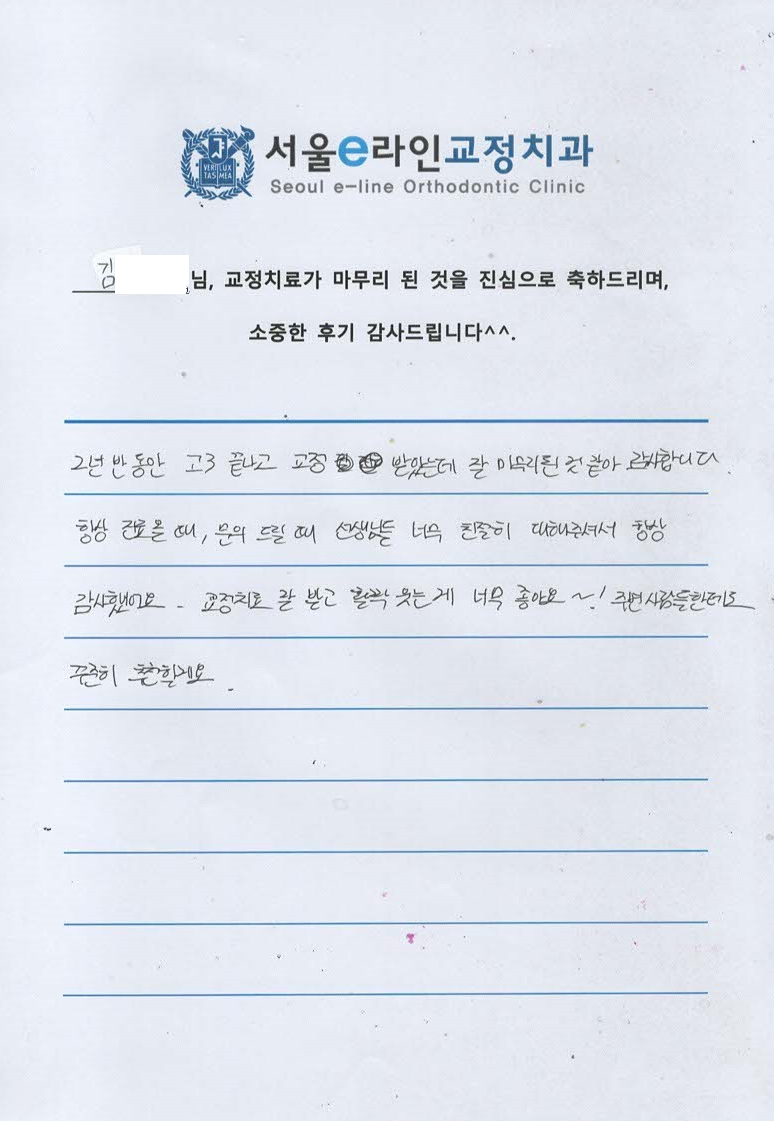 서울e라인교정치과
VERI LUX
TAS MEA
Seoul e-line Orthodontic Clinic
김 님, 교정치료가 마무리 된 것을 진심으로 축하드리며,
소중한 후기 감사드립니다^^.
2년 반 동안 고3 끝나고 교정 받았는데 잘 마무리된 것 같아 감사합니다.
항상 진료올 때, 문의 드릴 때 선생님들 너무 친절히 대해주셔서 항상
감사했어요. 교정치료 잘 받고 활짝 웃는게 너무 좋아요~! 주변사람들한테도
꾸준히 추천할게요.